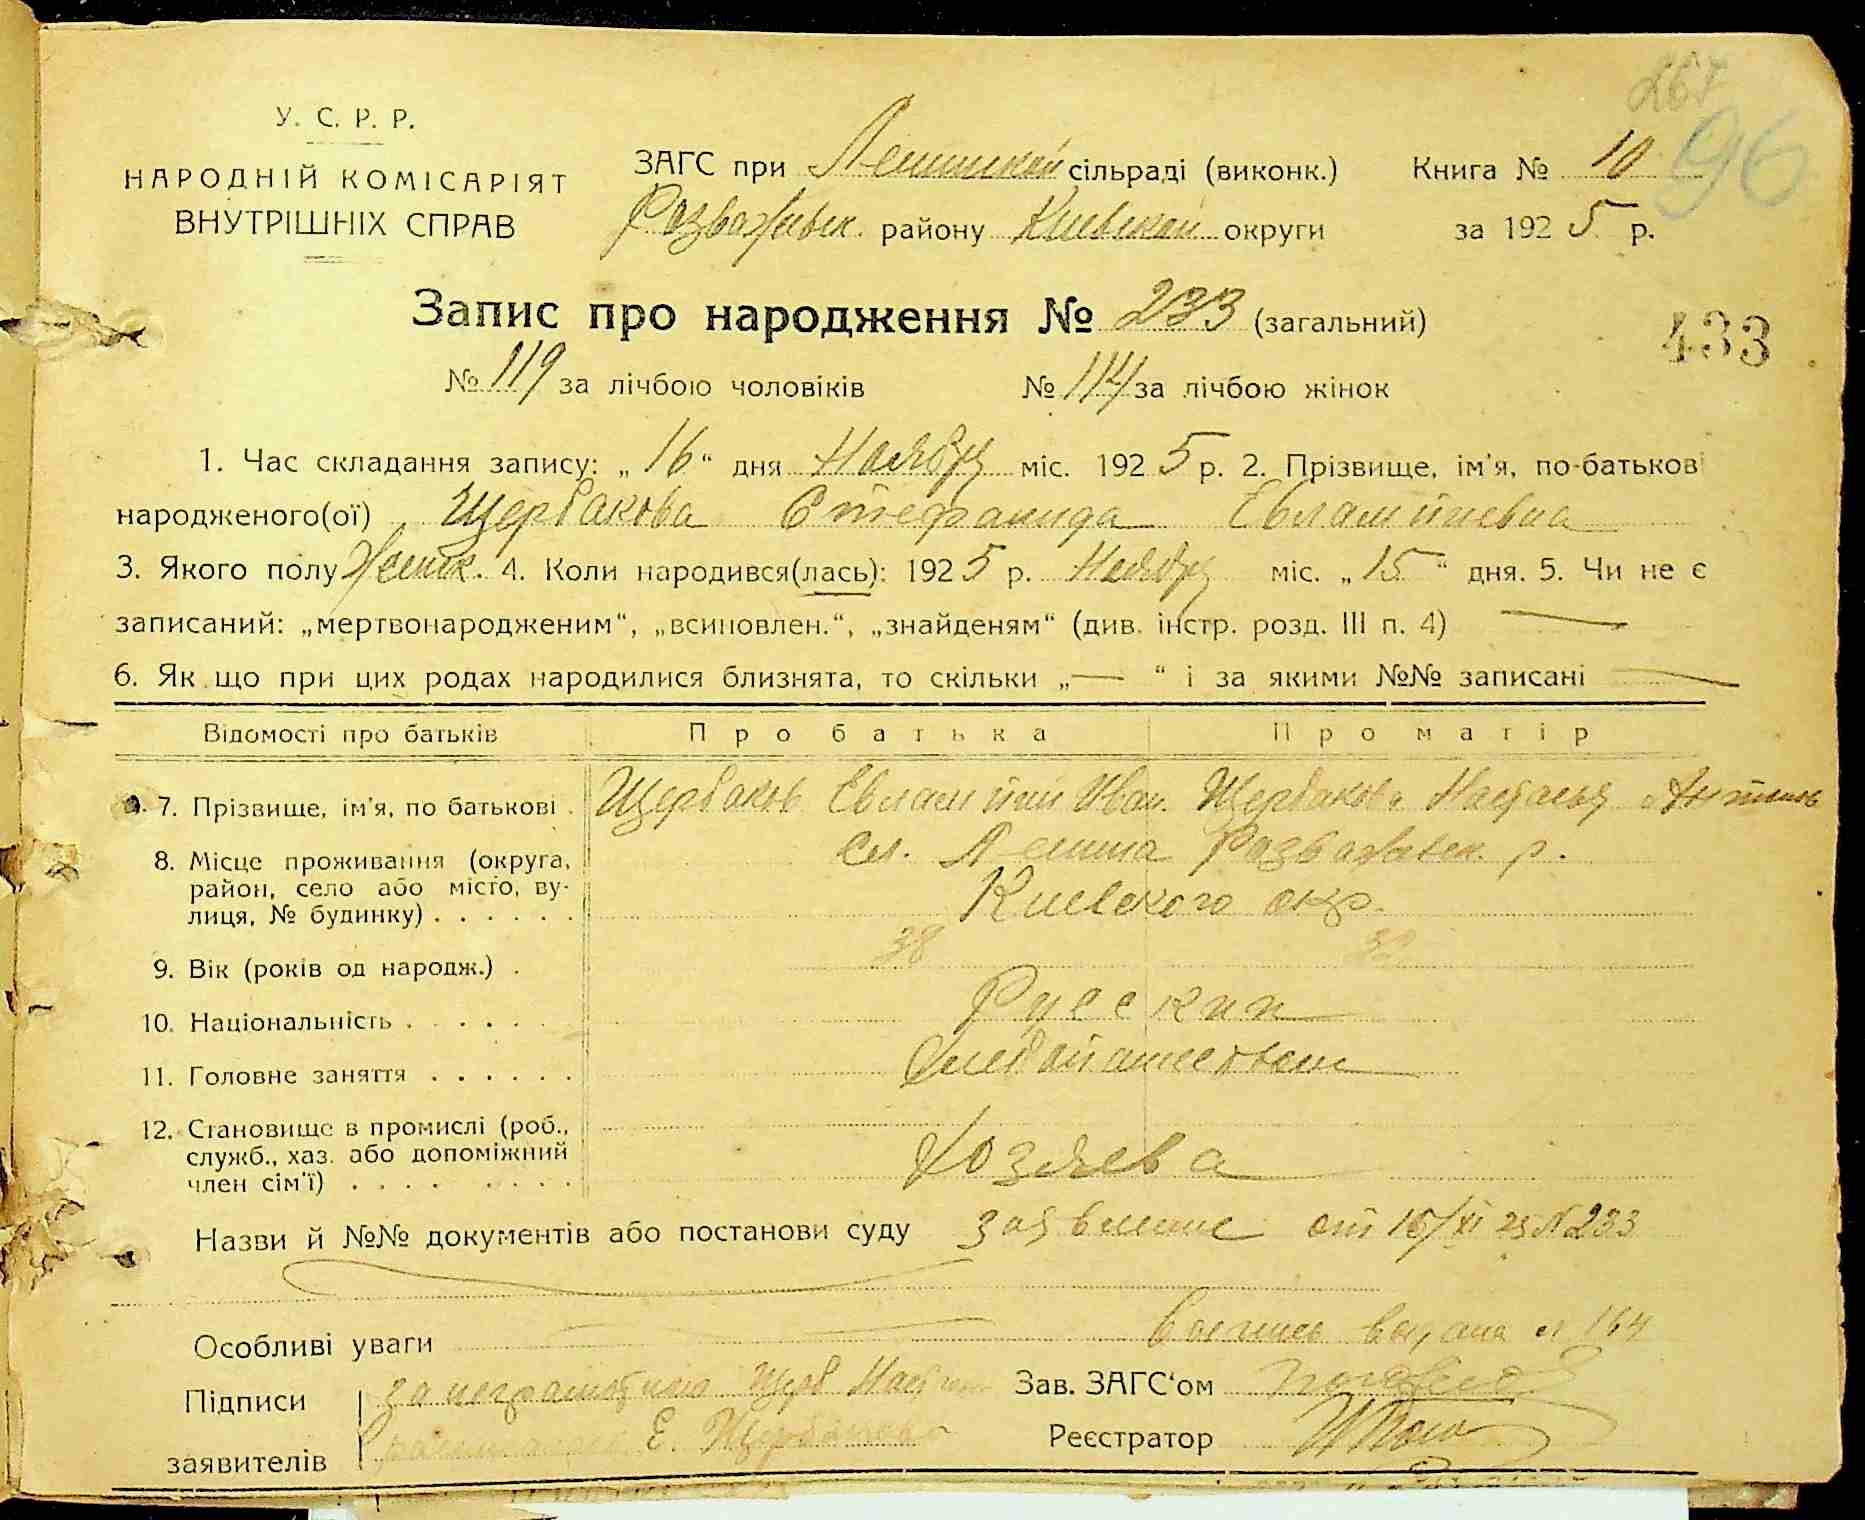 267
96
У. С. Р. Р.
НАРОДНІЙ КОМІСАРІЯТ
ВНУТРІШНІХ СПРАВ
ЗАГС при сільраді (виконк.) Книга № 10
Розважевск. району Киевской округи за 1925 р.
Запис про народження № 233 (загальний)
433
№ 119 за лічбою чоловіків № 114 за лічбою жінок
1. Час складання запису: „16“ дня Ноября міс. 1925 р. 2. Прізвище, ім'я, по-батькові
народженого(ої) Щербакова Стефанида Евлампиевна
3. Якого полу Женск. 4. Коли народився(лась): 1925 р. Ноября міс. „15“ дня. 5. Чи не є
записаний: „мертвонародженим“, „всиновлен.“, „знайденям“ (див. інстр. розд. III п. 4) —
6. Як що при цих родах народилися близнята, то скільки „—“ і за якими №№ записані —
Відомості про батьків Про батька Про матір
7. Прізвище, ім'я, по батькові . Щербаков Евлампий Иван. Щербакова Настасья
8. Місце проживання (округа,
район, село або місто, ву-
лиця, № будинку) . . . . . .
Розважевск. р.
Киевского окр.
9. Вік (років од народж.) . 38
10. Національність . . . . . Русские
11. Головне заняття . . . . . . Хлебопашество
12. Становище в промислі (роб.,
служб., хаз. або допоміжний
член сім'ї) . . . . . . . . Хозяева
Назви й №№ документів або постанови суду заявление от 16/XI 25 N 233
Особливі уваги выдана № 164
Підписи за неграмотною Щерб
заявителів Е. Щербакова
Зав. ЗАГС'ом
Реєстратор